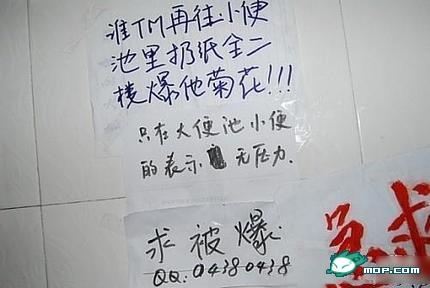 谁TM再往小便
池里扔纸全二
楼爆他菊花!!!
只在大便池小便
的表示 无压力.
求被爆.
QQ:04380438
急求
MOP.COM